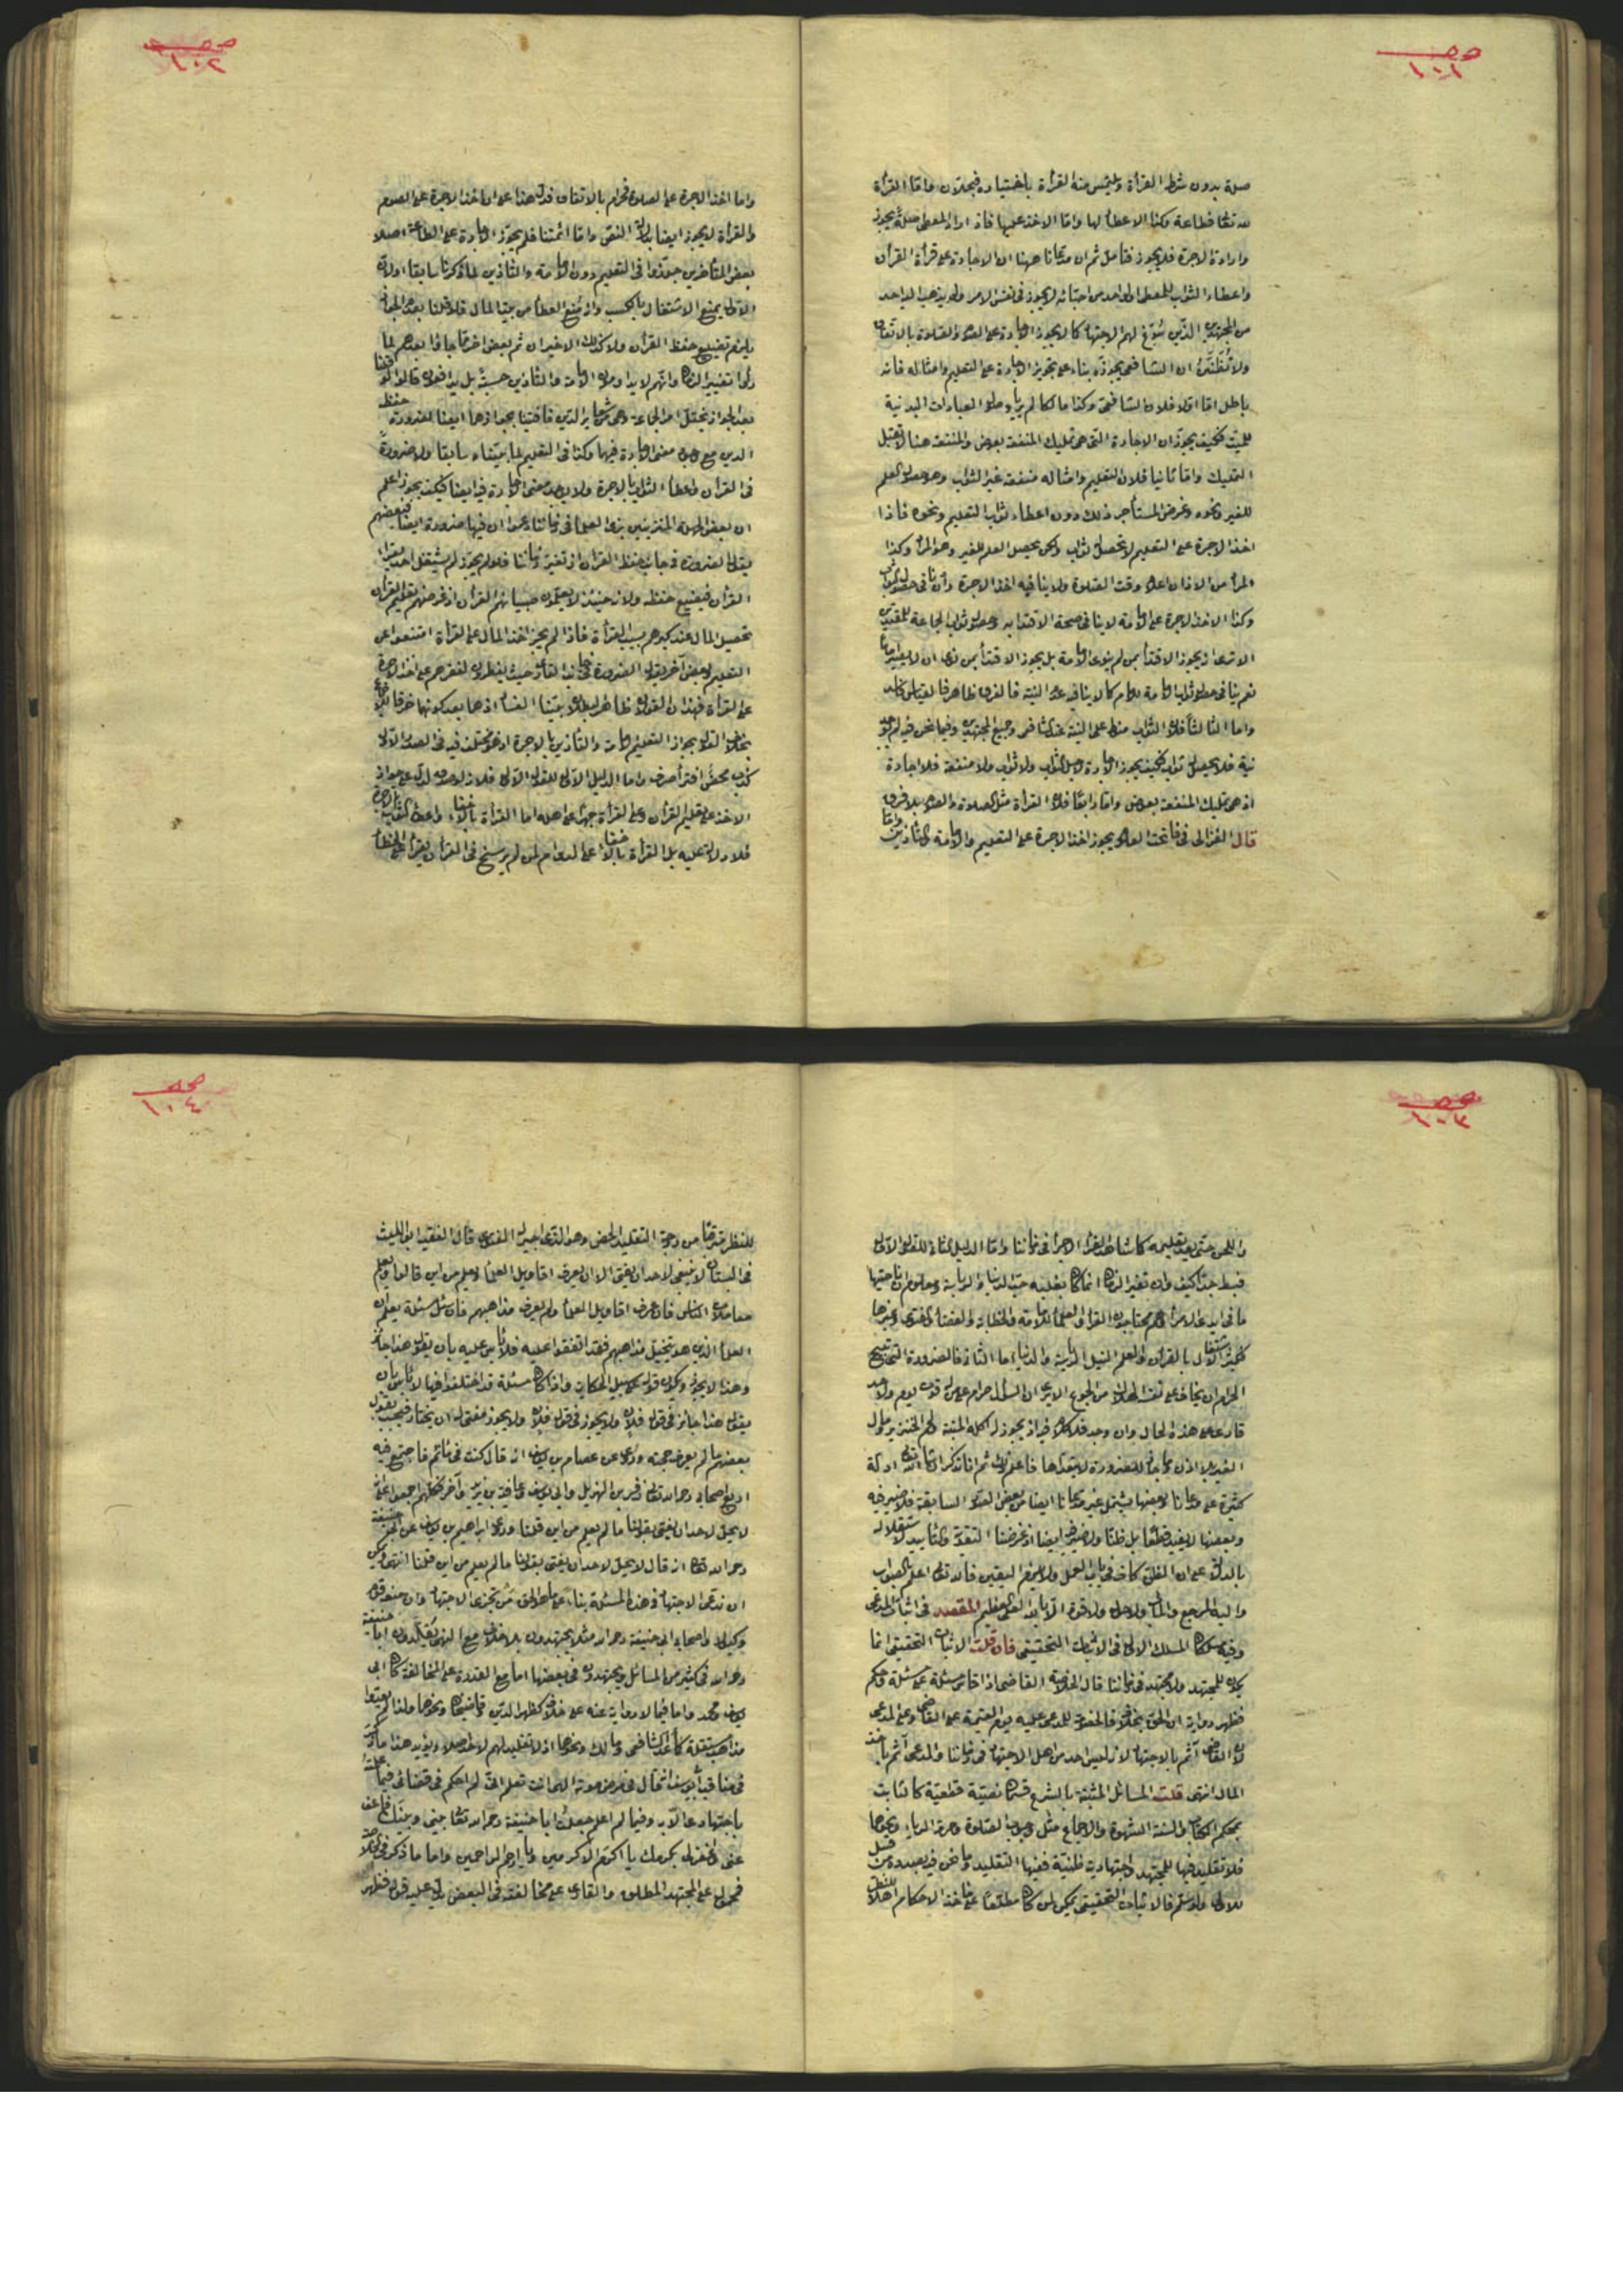 صحـ ١٠١
صلة بدون شرط القرأة ويلتمس منه القرأة باختياره فيجلان واما القرأة
لله تعا فطاعة وكذا الاعطأ لها واما الاخذ عليها فاذا اراد المعطى صلة يجوز
وارادة الاجرة فلا يجوز فتأمل ثم ان مدعانا ههنا ان الاجارة على قرأة القرأن
واعطاء الثواب للمعطى اولواحد من احبائه لا يجوز فى نفس الامر ولم يذهب اليه احد
من المجتهدين الذين سُوّغ لهم الاجتهاد كما لا يجوز الاجارة على الصوم والصلوة بالاتفاق
ولا تُظنّنّ ان الشافعى يجوزه بناء على تجويز الاجارة على التعليم وامثاله فانه
باطل اما اولا فلان الشافعى وكذا مالكا لم يريا وصول العبادات البدنية
للميت فكيف يجوزان الاجارة التى هى تمليك المنفعة بعوض والمنفعة هنا لا تقبل
التمليك واما ثانيا فلان التعليم وامثاله منفعة غير الثواب وهو حصول العلم
للغير ونحوه وغرض المستأجر ذلك دون اعطاء ثواب التعليم ونحوه فاذا
اخذ الاجرة على التعليم لا يحصل ثواب ولكن يحصل العلم للغير وهو المراد وكذا
المراد من الاذان اعلام وقت الصلوة ولا ينافيه اخذ الاجرة وان نافى حصول الثواب
وكذا الاخذ الاجرة على الامامة لا ينافى صحة الاقتدا به وحصول ثواب الجماعة للمقتدين
الا ترى انه يجوز الاقتدأ بمن لم ينوى الامامة بل يجوز الاقتدأ بمن نوى ان لا يصير اماما
نعم ينافى حصول ثواب الامامة للامام كما لا ينافيه عدم النية فالفرق ظاهر فالقياس فاسد
واما الثا لثا فلان الثواب منوط على النية عند الشافعى وجميع المجتهدين وفيما نحن فيه لم يوجد
نية فلا يحصل ثواب فكيف يجوز الاجارة لاجل الثواب ولا ثواب ولا منفعة فلا اجارة
اذ هى تمليك المنفعة بعوض واما رابعًا فلان القرأة مثل الصلوة والصوم بلا فرق
قال الغزالى فى فاتحت العلوم يجوز اخذ الاجرة على التعليم والامامة والتأذين واما
صحـ ١٠٢
واما اخذ الاجرة على الصلوة فحرام بالاتفاق فدل هذا على ان اخذ الاجرة على الصوم
والقرأة لا يجوز ايضا بدلالة النص واما ائمتنا فلم يجوّز الاجارة على الطاعة اصلا
بعض المتأخرين جوّزوا فى التعليم دون الامامة والتأذين لما ذكرنا سابقا اولان
الاول يمنع الاشتغال بالكسب واذ مُنع العطأ من بيت المال فلو قلنا بعدم الجواز
يلزم تضييع حفظ القرأن ولا كذلك الاخيران ثم بعض اخر لما جاؤا بعدهم لما
رأوا تغيير الزمان وانهم لا يداومون الامامة والتأذين حسبة بل يدافعون قالوا لو قلنا
بعدم الجواز يختل امر الجماعة وهى من شعاير الدين فافتينا بجوازهما ايضا لضرورة حفظ
الدين مع وجود معنى الاجارة فيها وكذا فى التعليم لما بينّاه سابقا ولا ضرورة
فى القرأن واعطأ الثواب بالاجرة ولا يوجد معنى الاجارة فيه ايضا فكيف يجوز اعلم
ان بعض الجهلة المتزيين بزى العلما فى زماننا زعموا ان فيها ضرورة ايضا فبعضهم
يقول الضرورة فى جانب حفظ القرأن اذ تغير زماننا فلو لم يجوّز لم يشتغل احد بقرأة
القرأن فيضيع حفظه ولانه حينئذ لا يعلّمون صبيانهم القرأن اذ غرضهم بتعليم القرأن
تحصيل المال عند كبرهم بسبب القرأة فاذا لم يجز اخذ المال على القرأة امتنعوا عن
التعليم وبعض آخر يقول الضرورة فى جانب القارى حيث يضطرون لفقرهم على اخذ الاجرة
على القرأة فهذان القولان ظاهر البطلان بيّنا الفساد اذهما بعد كونهما خرقا
بخلاف القول بجواز التعليم والامامة والتأذين بالاجرة اذ هو مختلف فيه فى الصدر الاول
كذب محض وافترأ صرف واما الدليل الاول للقول الاول فلانه لا يدل على جواز
الاخذ على تعليم القرأن وعلى القرأة جهرا على اهله اما القرأة بالاخفا واعطأ الثواب بالاجرة
فلا دلالة عليه بل القرأة بالاخفا على الدوام لمن لم يرسخ فى القرأن يقرأ على الخطأ
صحـ ١٠٣
واللحن حتى بعد تعليمه كما شاهدنا القرأ الاجرأ فى زماننا واما الدليل الثانى للقول الاول
فبط جدا كيف وان تغير الزمان انما كان بغلبة حب الدنيا والرياسة ومعلوم ان ناحيتها
ما فى ايدى الامرأ وهم محتاجون القرأ والعلمأ للامامة والخطابة والقضأ والفتوى وغيرها
فكيف الاشتغال بالقرأن والعلم لنيل الرياسة والدنيا واما الثانى فالضرورة التى تبيح
الحرام ان يخاف على نفسه الهلاك من الجوع الا ترى ان السؤال حرام على من له قوت يوم ولا احد
قارئ على هذه الحال وان وجد فلا كلام فيه اذ يجوز له اكله الميتة ولحم الخنزير ومال
الغير بلا اذن مجانا للضرورة لا يتعداها فاعلم ذلك ثم انا نذكر ان شاء الله تعالى ادلة
كثيرة على مدعانا وبعضها يشتمل غير مدعانا ايضا من بعض الصور السابقة فلا ضير فيه
وبعضها لا يفيد قطعا بل ظنا ولا ضير فيه ايضا اذ غرضنا التقوية والتأييد لاستقلاله
بالدلالة على ان الظن كاف فى باب العمل ولا يلزم اليقين فالله تعالى اعلم بالصواب
واليه المرجع والمآب ولا حول ولا قوة الا بالله العلى العظيم المقصد فى اثبات المدعى
وفيه مسلكان المسلك الاول فى الاثبات التحقيقى فان قلت الاثبات التحقيقى انما
يكون للمجتهد ولا مجتهد فى زماننا قال فى الخلاصة القاضى اذا قاس مسئلة على مسئلة وحكم
فظهر رواية ان الحق بخلافه فالخصومة للمدعى عليه يوم القيمة على القاضى وعلى المدعى
لان القاضى آثم بالاجتهاد لانه ليس احد من اهل الاجتهاد فى زماننا والمدعى آثم باخذ
المال انتهى قلت المسائل المثبتة بالشرع قسمان نصيّة قطعيّة كالثابت
بمحكم الكتاب والسنة المشهورة والاجماع مثل وجوب الصلوة وحرمة الربا ونحوها
فلا تقليد فيها للمجتهد واجتهادية ظنيّة ففيها التقليد وما نحن فيه بصدده من قبيل
الاول ولو سلم فالاثبات التحقيقى يمكن لمن كان مطلعا على مأخذ الاحكام اهلا للنظر
صحـ ١٠٤
للنظر مترقيا من درجة التقليد المحض وهو الذى اجيز له الفتوى قال الفقيه ابو الليث
فى البستان لا ينبغى لاحد ان يفتى الا ان يعرف اقاويل العلمأ ويعلم من اين قالوا ويعلم
معاملات الناس فان عرف اقاويل العلمأ ولم يعرف مذاهبهم فان سئل مسئلة يعلم ان
العلمأ الذين هو ينتحل مذاهبهم فقد اتفقوا عليه فلا بأس عليه بان يقول هذا جائز
وهذا لا يجوز ويكون قوله على سبيل الحكاية واذا كان مسئلة قد اختلفوا فيها لا بأس بان
يقول هذا جائز فى قول فلان ولا يجوز فى قول فلان ولا يجوز له ان يختار فيجيب بقول
بعضهم ما لم يعرف حجته وروى عن عصام بن يوسف انه قال كنت فى مأتم فاجتمع فيه
اربع اصحاب ابى حنيفة رحمه الله تعالى زفر بن الهزيل وابى يوسف وعافية بن يزيد وآخر فكلهم اجمعوا على انه
لا يحل لاحد ان يفتى بقولنا ما لم يعلم من اين قلنا وروى ابراهيم بن يوسف عن ابى حنيفة
رحمه الله تعالى انه قال لا يحل لاحد ان يفتى بقولنا ما لم يعلم من اين قلنا انتهى ولكن
ان ندعى الاجتهاد فى هذه المسئلة بناء على ما هو الحق من تجزى الاجتهاد وان منعه قوم
وكيف واصحاب ابى حنيفة رحمه الله مثلا يجتهدون بلا خلاف مع انهم يقلدون ابا حنيفة
رحمه الله فى كثير من المسائل ويجتهدون فى بعضها اما مع القدرة على المخالفة كابى
يوسف ومحمد واما فيما لا رواية عنه على خلافه كظهير الدين وقاضيخان ونحوهما ولذا لم يعتبروا
مذاهب مستقلة كاحمد والشافعى ومالك ونحوهم اذ لا تقليد لهم لاحد اصلا ويؤيد هذا ما ذكر
فى مناقب ابى يوسف انه قال فى مرض موته اللهم انت تعلم انى لم احكم فى قضائى فيما علمت
باجتهاد عالا به وفيما لم اعلم جعلت ابا حنيفة رحمه الله تعا بينى وبينك فاعف
عنى واغفر لى بكرمك يا اكرم الاكرمين ويا ارحم الراحمين واما ما ذكر فى الخلاصة
فمحمول على المجتهد المطلق والقادر على مخالفته فى البعض يدل عليه قوله فظهر